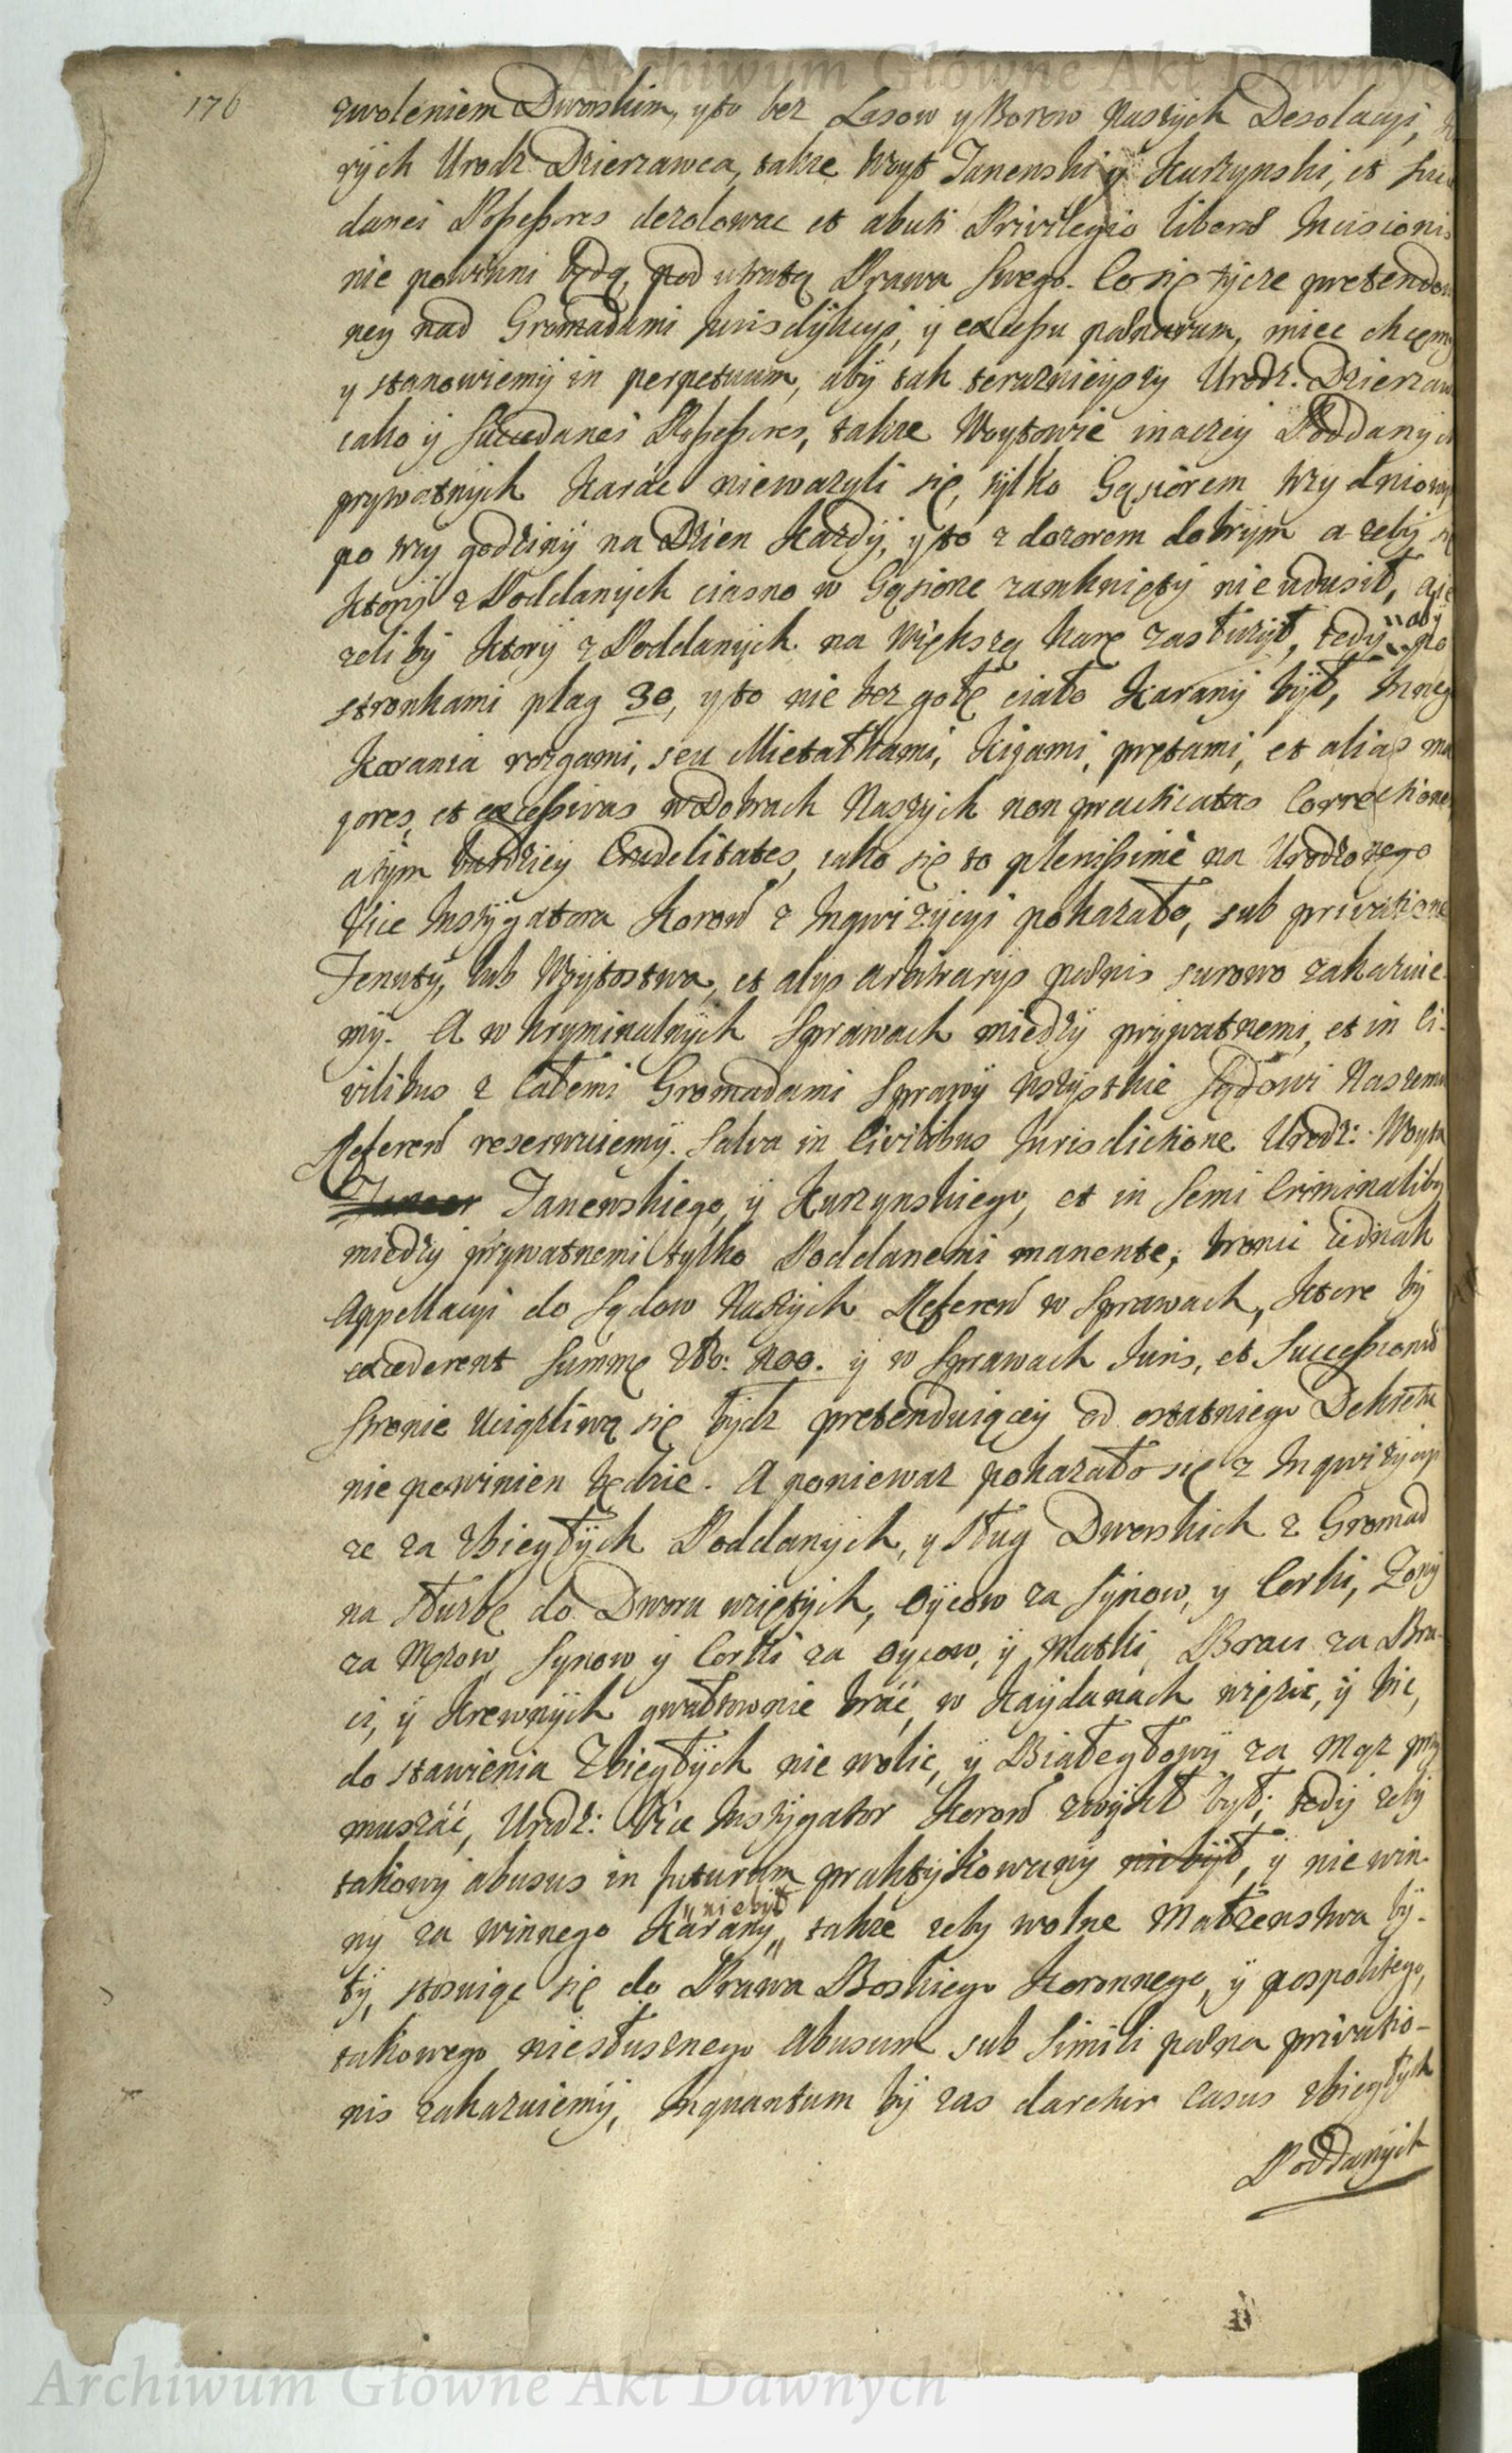 Archiwum Główne Akt Dawnych
176
zwoleniem Dworskim, y to bez Lasow y Borow Naszych Desolacyi,
rych Urodz Dzierzawca, takze Woyt Janenski y Kurzynski, et Succe
danei Possessores dezolowac et abuti Privilegio liberæ Incisionis
nie powinni będą, pod utratą Prawa Swego. Co się tycze pretendow
ney nad Gromadami Jurisdykcyi, y excessu pœnarum, miec chcemy
y stanowiemy in perpetuum, aby tak teraznieyszy Urodz: Dzierzaw
iako y Succedanei Possessores, takze Woytowie inaczey Poddanych
prywatnych karać niewazyli się, tylko Gąsiorem trzydniowy
po trzy godziny na Dzien kazdy, y to z dozorem dobrym a zeby się
ktory z Poddanych ciasno w Gąsiorze zamknięty nie udusił, a ie
zeli by ktory z Poddanych na większą karę zasłuzył, tedy "aby" po
stronkami plag 30, y to nie bez gołe ciało karany był, Inneg
karania rozgami, seu Mietałkami, kijami, prętami, et alias ma
jores, et excessivas w Dobrach Naszych non practicatas Correctiones
a tym bardziey Crudelitates, iako się to plenissimè na Urodzonego
Vice Instygatora Koron z Inqwizycyi pokazało, sub privatione
Tenuty, lub Woytostwa, et alijs arbitrarijs pœnis surowo zakazuie-
my. A w kryminalnych Sprawach między prywatnemi, et in Ci-
vilibus z Całemi Gromadami Sprawy wszystkie Sądowi Naszemu
Referen reserwuiemy. Salva in Civilibus Jurisdictione Urodz: Woyta
Janewskiego, y Kurzynskiego, et in Semi Criminalibus
między prywatnemi tylko Poddanemi manente, bronic iednak
Appellacyi do Sądow Naszych Referen w Sprawach, ktore by
excederent Summę Zło: 100. y w Sprawach Juris, et Successionis
Stronie Uciązliwą się bydz pretenduiącey od ostatniego Dekretu
nie powinien będzie. A poniewaz pokazało się z Inqwizycyi
ze za Zbiegłych Poddanych, y Sług Dworskich z Gromad
na słuzbę do Dworu wziętych, Oycow za Synow, y Corki, Zony
za Męzow, Synow y Corki za Oycow, y Matki, Braci za Bra-
ci, y Krewnych gwałtownie brać, w kaydanach więzic, y bic,
do stawienia Zbiegłych niewolic, y Białegłowy za Mąz przy
muszać, Urodz: Vice Instygator Koron zwykł był; tedy zeby
takowy abusus in futurum praktykowany nie był, y niewin-
ny za winnego karany "nie był", takze zeby wolne Małzenstwa by-
ły, stosuiąc się do Prawa Boskiego Koronnego, y pospolitego,
takowego niesłusznego Abusum sub Simili pœna privatio-
nis zakazuiemy, Inquantum by zas daretur Casus zbiegłych
Poddanych
Archiwum Główne Akt Dawnych